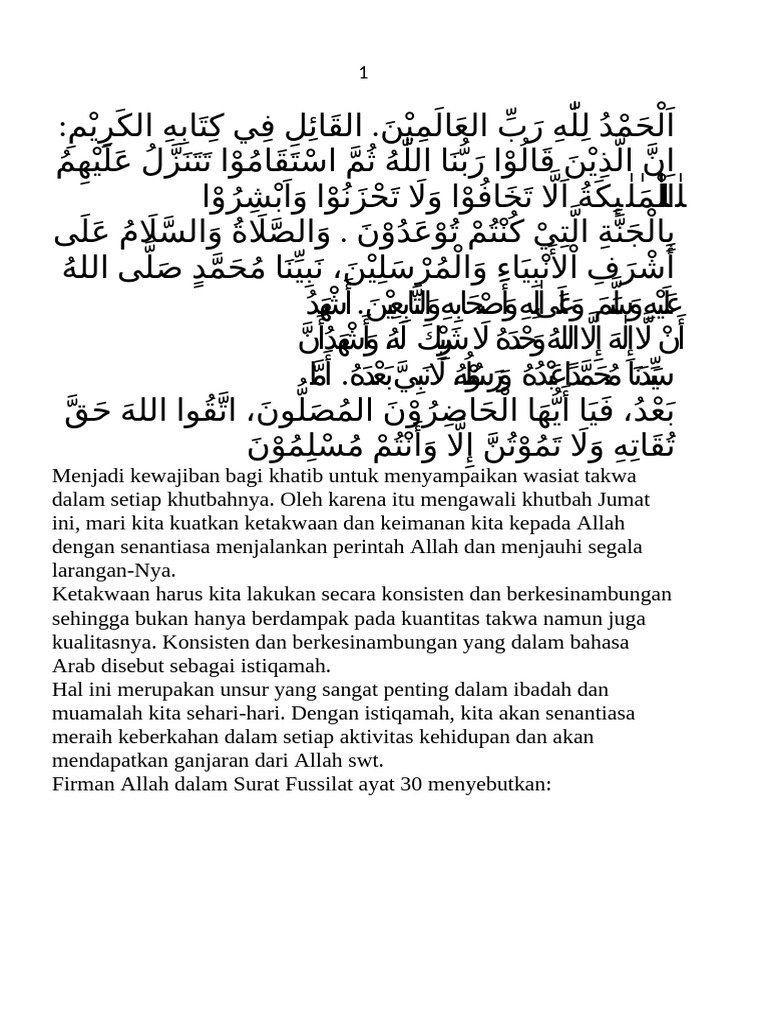 1
اَلْحَمْدُ لِلّٰهِ رَبِّ العَالَمِيْنَ. القَائِلِ فِي كِتَابِهِ الكَرِيْمِ:
اِنَّ الَّذِيْنَ قَالُوْا رَبُّنَا اللّٰهُ ثُمَّ اسْتَقَامُوْا تَتَنَزَّلُ عَلَيْهِمُ
الْمَلٰۤىِٕكَةُ اَلَّا تَخَافُوْا وَلَا تَحْزَنُوْا وَاَبْشِرُوْا
بِالْجَنَّةِ الَّتِيْ كُنْتُمْ تُوْعَدُوْنَ . وَالصَّلَاةُ وَالسَّلَامُ عَلَى
أَشْرَفِ اْلأَنْبِيَاءِ وَالْمُرْسَلِيْنَ، نَبِيِّنَا مُحَمَّدٍ صَلَّى اللهُ
عَلَيْهِ وَسَلَّمَ وَعَلَى اٰلِهِ وَأَصْحَابِهِ وَالتَّابِعِيْنَ. أَشْهَدُ
أَنْ لَّا إِلٰهَ إِلَّا اللهُ وَحْدَهُ لَا شَرِيْكَ لَهُ، وَأَشْهَدُ أَنَّ
سَيِّدَنَا مُحَمَّدًا عَبْدُهُ وَرَسُوْلُهُ، لَا نَبِيَّ بَعْدَهُ. أَمَّا
بَعْدُ، فَيَا أَيُّهَا الْحَاضِرُوْنَ المُصَلُّونَ، اتَّقُوا اللهَ حَقَّ
تُقَاتِهِ وَلَا تَمُوْتُنَّ إِلَّا وَأَنْتُمْ مُسْلِمُوْنَ
Menjadi kewajiban bagi khatib untuk menyampaikan wasiat takwa
dalam setiap khutbahnya. Oleh karena itu mengawali khutbah Jumat
ini, mari kita kuatkan ketakwaan dan keimanan kita kepada Allah
dengan senantiasa menjalankan perintah Allah dan menjauhi segala
larangan-Nya.
Ketakwaan harus kita lakukan secara konsisten dan berkesinambungan
sehingga bukan hanya berdampak pada kuantitas takwa namun juga
kualitasnya. Konsisten dan berkesinambungan yang dalam bahasa
Arab disebut sebagai istiqamah.
Hal ini merupakan unsur yang sangat penting dalam ibadah dan
muamalah kita sehari-hari. Dengan istiqamah, kita akan senantiasa
meraih keberkahan dalam setiap aktivitas kehidupan dan akan
mendapatkan ganjaran dari Allah swt.
Firman Allah dalam Surat Fussilat ayat 30 menyebutkan: